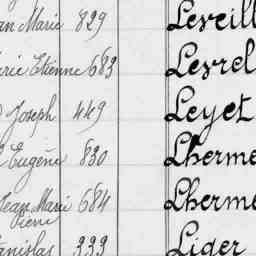 an Marie 829 Leveill
rie Etienne 683 Levrel
Joseph 449 Leyet
Eugène 830 Lherme
Jean Marie 684 Lherme
Pierre
anislas 333 Liger